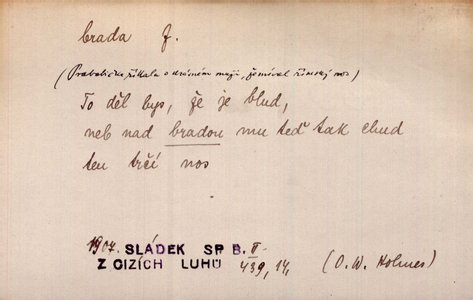 brada f.
(Prababička říkala o drávném muži, že míval římský nos)
To děl bys, že je blud,
neb nad bradou mu teď tak chud
ten trčí nos
1907. SLÁDEK SP B. II-
Z CIZÍCH LUHŮ 439, 14,
(O. W. Holmes)